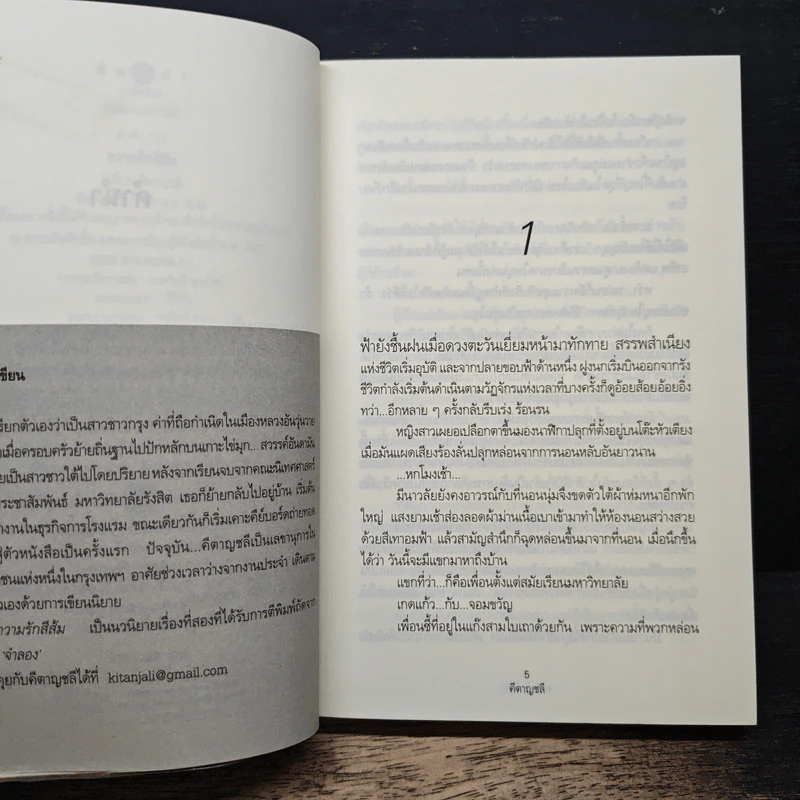 คำนำ
ขียน
รียกตัวเองว่าเป็นสาวชาวกรุง ค่าที่ถือกำเนิดในเมืองหลวงอันวุ่นวาย
าเมื่อครอบครัวย้ายถิ่นฐานไปปักหลักบนเกาะไข่มุก... สวรรค์อันดามัน
ยเป็นสาวชาวใต้ไปโดยปริยาย หลังจากเรียนจบจากคณะนิเทศศาสตร์
ระชาสัมพันธ์ มหาวิทยาลัยรังสิต เธอก็ย้ายกลับไปอยู่บ้าน เริ่มต้น
างานในธุรกิจการโรงแรม ขณะเดียวกันก็เริ่มเคาะคีย์บอร์ดถ่ายทอด
ู่ตัวหนังสือเป็นครั้งแรก ปัจจุบัน...คีตาญชลีเป็นเลขานุการใน
ชนแห่งหนึ่งในกรุงเทพฯ อาศัยช่วงเวลาว่างจากงานประจำ เดินตาม
ัวเองด้วยการเขียนนิยาย
ความรักสีส้ม เป็นนวนิยายเรื่องที่สองที่ได้รับการตีพิมพ์ถัดจาก
'จำลอง'
คุยกับคีตาญชลีได้ที่ kitanjali@gmail.com
1
ฟ้ายังชื้นฝนเมื่อดวงตะวันเยี่ยมหน้ามาทักทาย สรรพสำเนียง
แห่งชีวิตเริ่มอุบัติ และจากปลายขอบฟ้าด้านหนึ่ง ฝูงนกเริ่มบินออกจากรัง
ชีวิตกำลังเริ่มต้นดำเนินตามวัฏจักรแห่งเวลาที่บางครั้งก็ดูอ้อยส้อยอ้อยอิ่ง
ทว่า...อีกหลาย ๆ ครั้งกลับรีบเร่ง ร้อนรน
หญิงสาวเผยอเปลือกตาขึ้นมองนาฬิกาปลุกที่ตั้งอยู่บนโต๊ะหัวเตียง
เมื่อมันแผดเสียงร้องลั่นปลุกหล่อนจากการนอนหลับอันยาวนาน
...หกโมงเช้า...
มีนาวลัยยังคงอาวรณ์กับที่นอนนุ่มจึงขดตัวใต้ผ้าห่มหนาอีกพัก
ใหญ่ แสงยามเช้าส่องลอดผ้าม่านเนื้อเบาเข้ามาทำให้ห้องนอนสว่างสวย
ด้วยสีเทาอมฟ้า แล้วสามัญสำนึกก็ฉุดหล่อนขึ้นมาจากที่นอน เมื่อนึกขึ้น
ได้ว่า วันนี้จะมีแขกมาหาถึงบ้าน
แขกที่ว่า...ก็คือเพื่อนตั้งแต่สมัยเรียนมหาวิทยาลัย
เกดแก้ว...กับ...จอมขวัญ
เพื่อนซี้ที่อยู่ในแก๊งสามใบเถาด้วยกัน เพราะความที่พวกหล่อน
5
คีตาญชลี